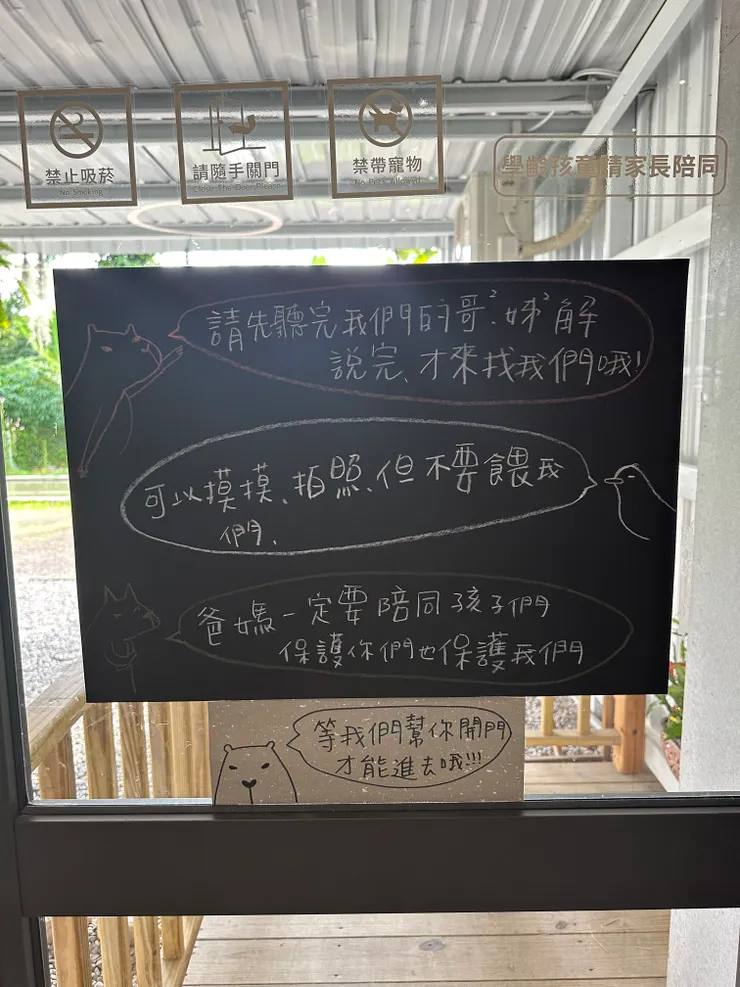 禁止吸菸
No Smoking
請隨手關門
Close The Door, Please
禁帶寵物
No Pets Allowed
學齡孩童請家長陪同
請先聽完我們的哥²、姊²解
說完、才來找我們哦!
可以摸摸、拍照、但不要餵我
們、
爸媽一定要陪同孩子們
保護你們也保護我們
等我們幫你開門
才能進去哦!!!